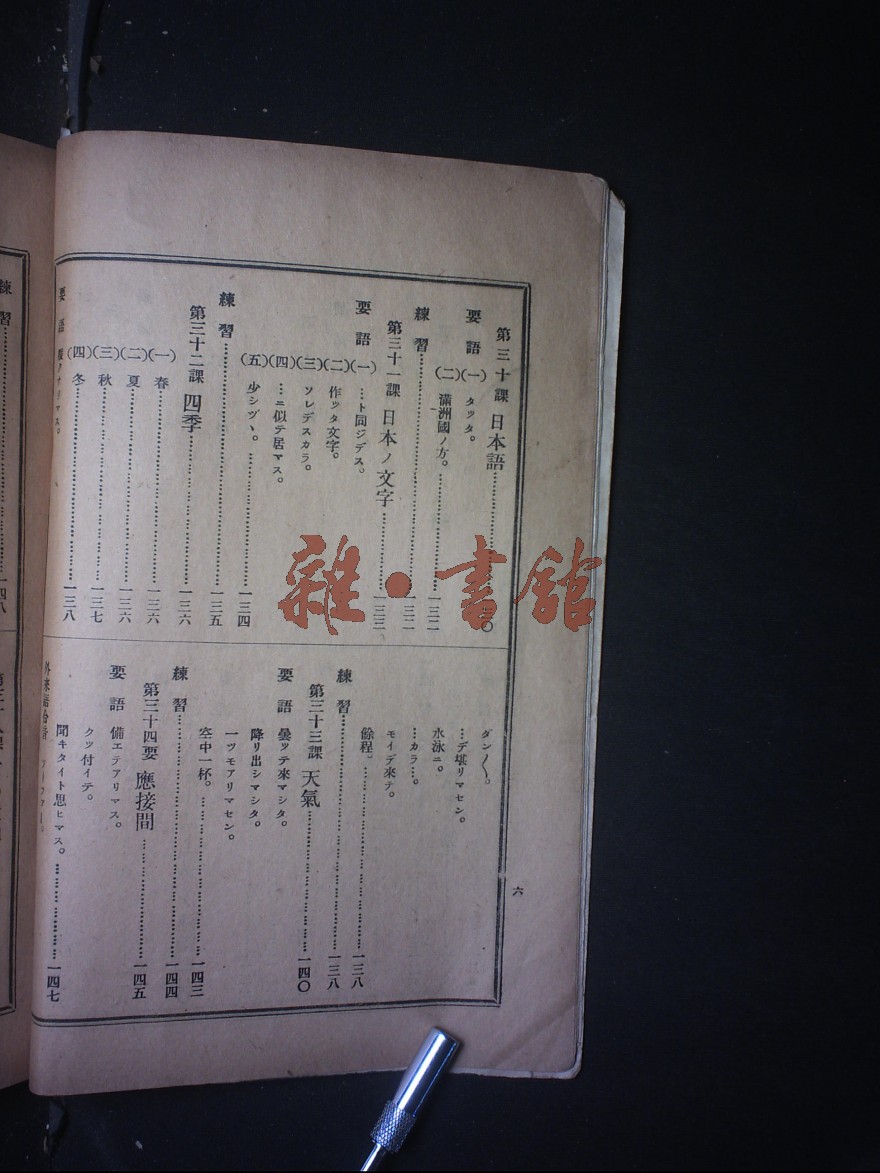 第三十課 日本語……〇
要語 (一) タッタ。
(二) 滿洲國ノ方。……一三二
練習……一三二
第三十一課 日本ノ文字……一三三
要語 (一) …ト同ジデス。
(二) 作ッタ文字。
(三) ソレデスカラ。
(四) …ニ似テ居マス。
(五) 少シヅヽ。……一三四
練習……一三五
第三十二課 四季……一三六
(一) 春……一三六
(二) 夏……一三六
(三) 秋……一三七
(四) 冬……一三八
要語 クナリマス。
ダン〱。
…デ堪リマセン。
水泳ニ。
…カラ…。
モイデ來テ。
餘程。……一三八
練習……一三八
第三十三課 天氣……一四〇
要語 曇ッテ來マシタ。
降リ出シマシタ。
一ツモアリマセン。
空中一杯。……一四三
練習……一四四
第三十四要 應接間……一四五
要語 備エテアリマス。
クッ付イテ。
聞キタイト思ヒマス。……一四七
六
練習……一四八
雜·書館